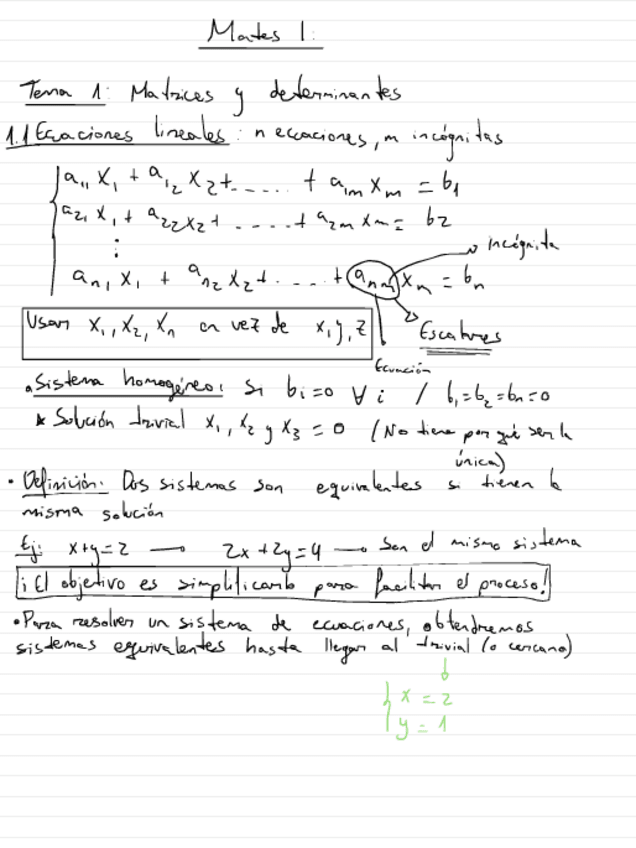 Mates 1:
Tema 1: Matrices y determinantes
1.1 Ecuaciones lineales: n ecuaciones, m incógnitas
a₁₁ x₁ + a₁₂ x₂ + ..... + a₁ₘ xₘ = b₁
a₂₁ x₁ + a₂₂ x₂ + ..... + a₂ₘ xₘ = b₂
⋮
incógnita
aₙ₁ x₁ + aₙ₂ x₂ + ..... + aₙₘ xₘ = bₙ
Usar x₁, x₂, xₙ en vez de x, y, z
Escalares
Ecuación
• Sistema homogéneo: Si bᵢ = 0 ∀ i / b₁ = b₂ = bₙ = 0
* Solución trivial x₁, x₂ y x₃ = 0 (No tiene por qué ser la
única)
• Definición: Dos sistemas son equivalentes si tienen la
misma solución
Ej: x+y=2 — 2x+2y=4 → Son el mismo sistema
¡El objetivo es simplificarlo para facilitar el proceso!
• Para resolver un sistema de ecuaciones, obtendremos
sistemas equivalentes hasta llegar al trivial (o cercano)
x = 2
y = 1